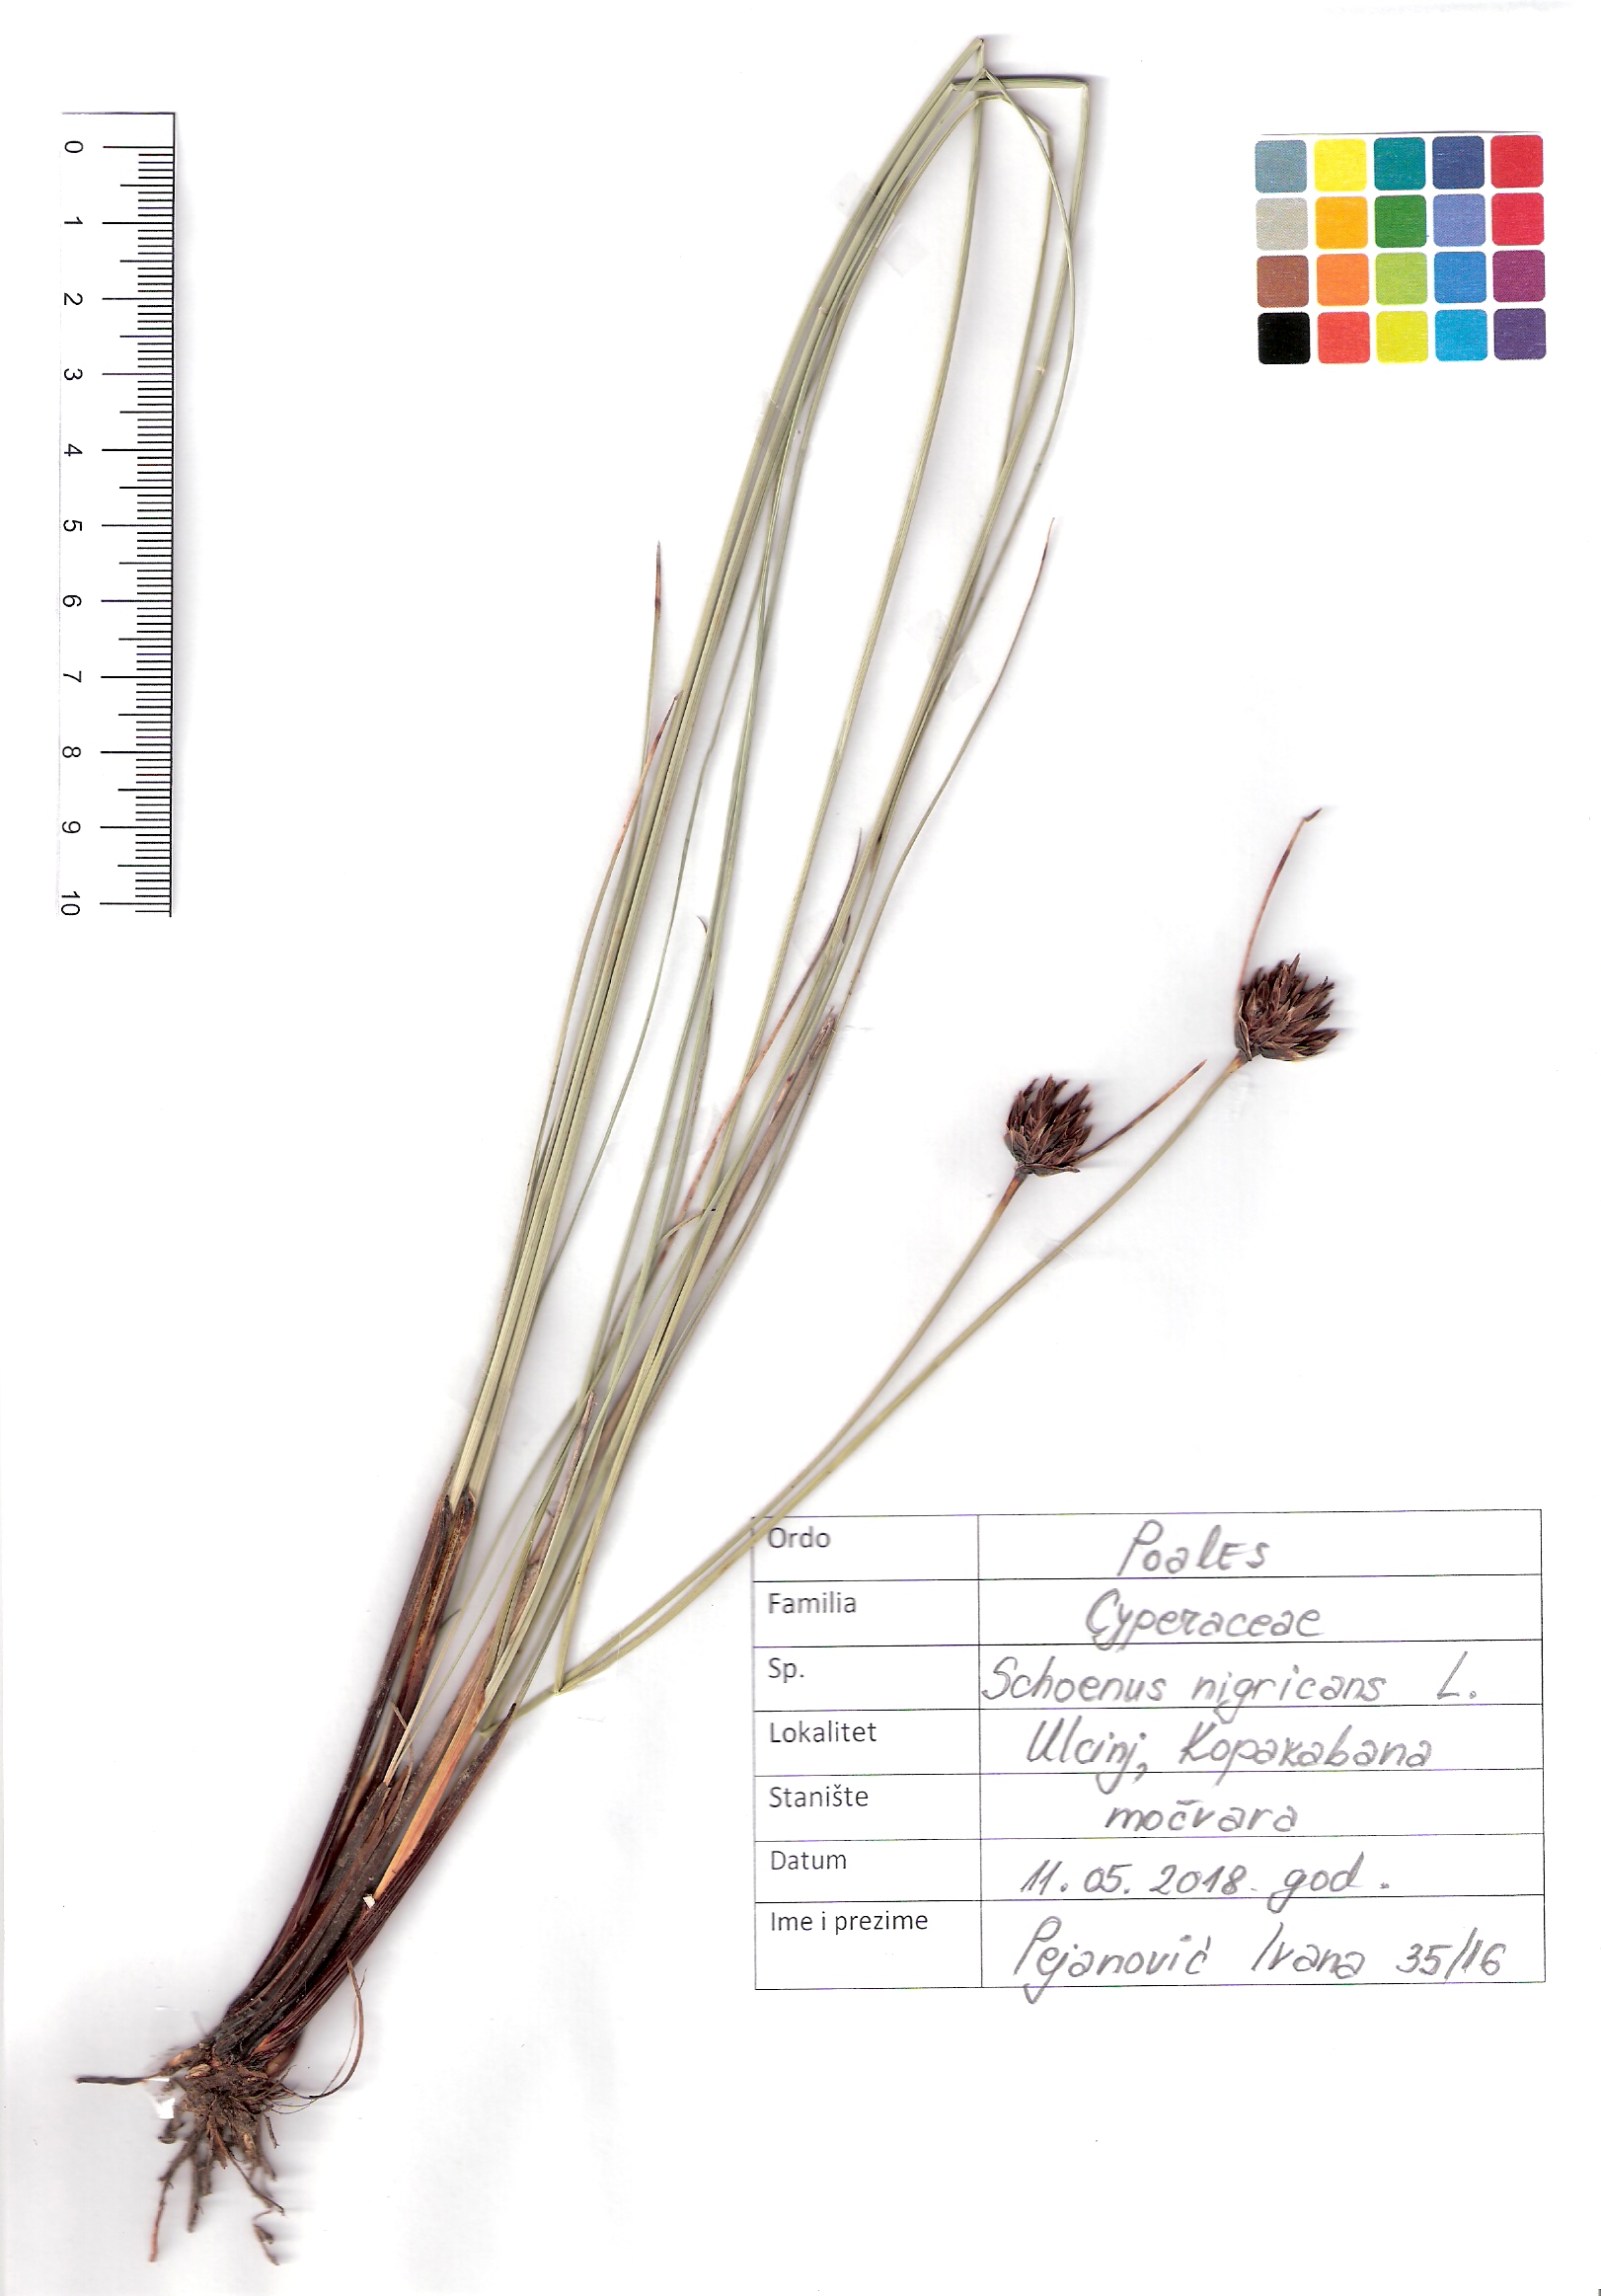 0
1
2
3
4
5
6
7
8
9
10
Ordo Poales
Familia Cyperaceae
Sp. Schoenus nigricans L.
Lokalitet Ulcinj, Kopakabana
Stanište močvara
Datum 11.05.2018. god.
Ime i prezime Pejanović Ivana 35/16